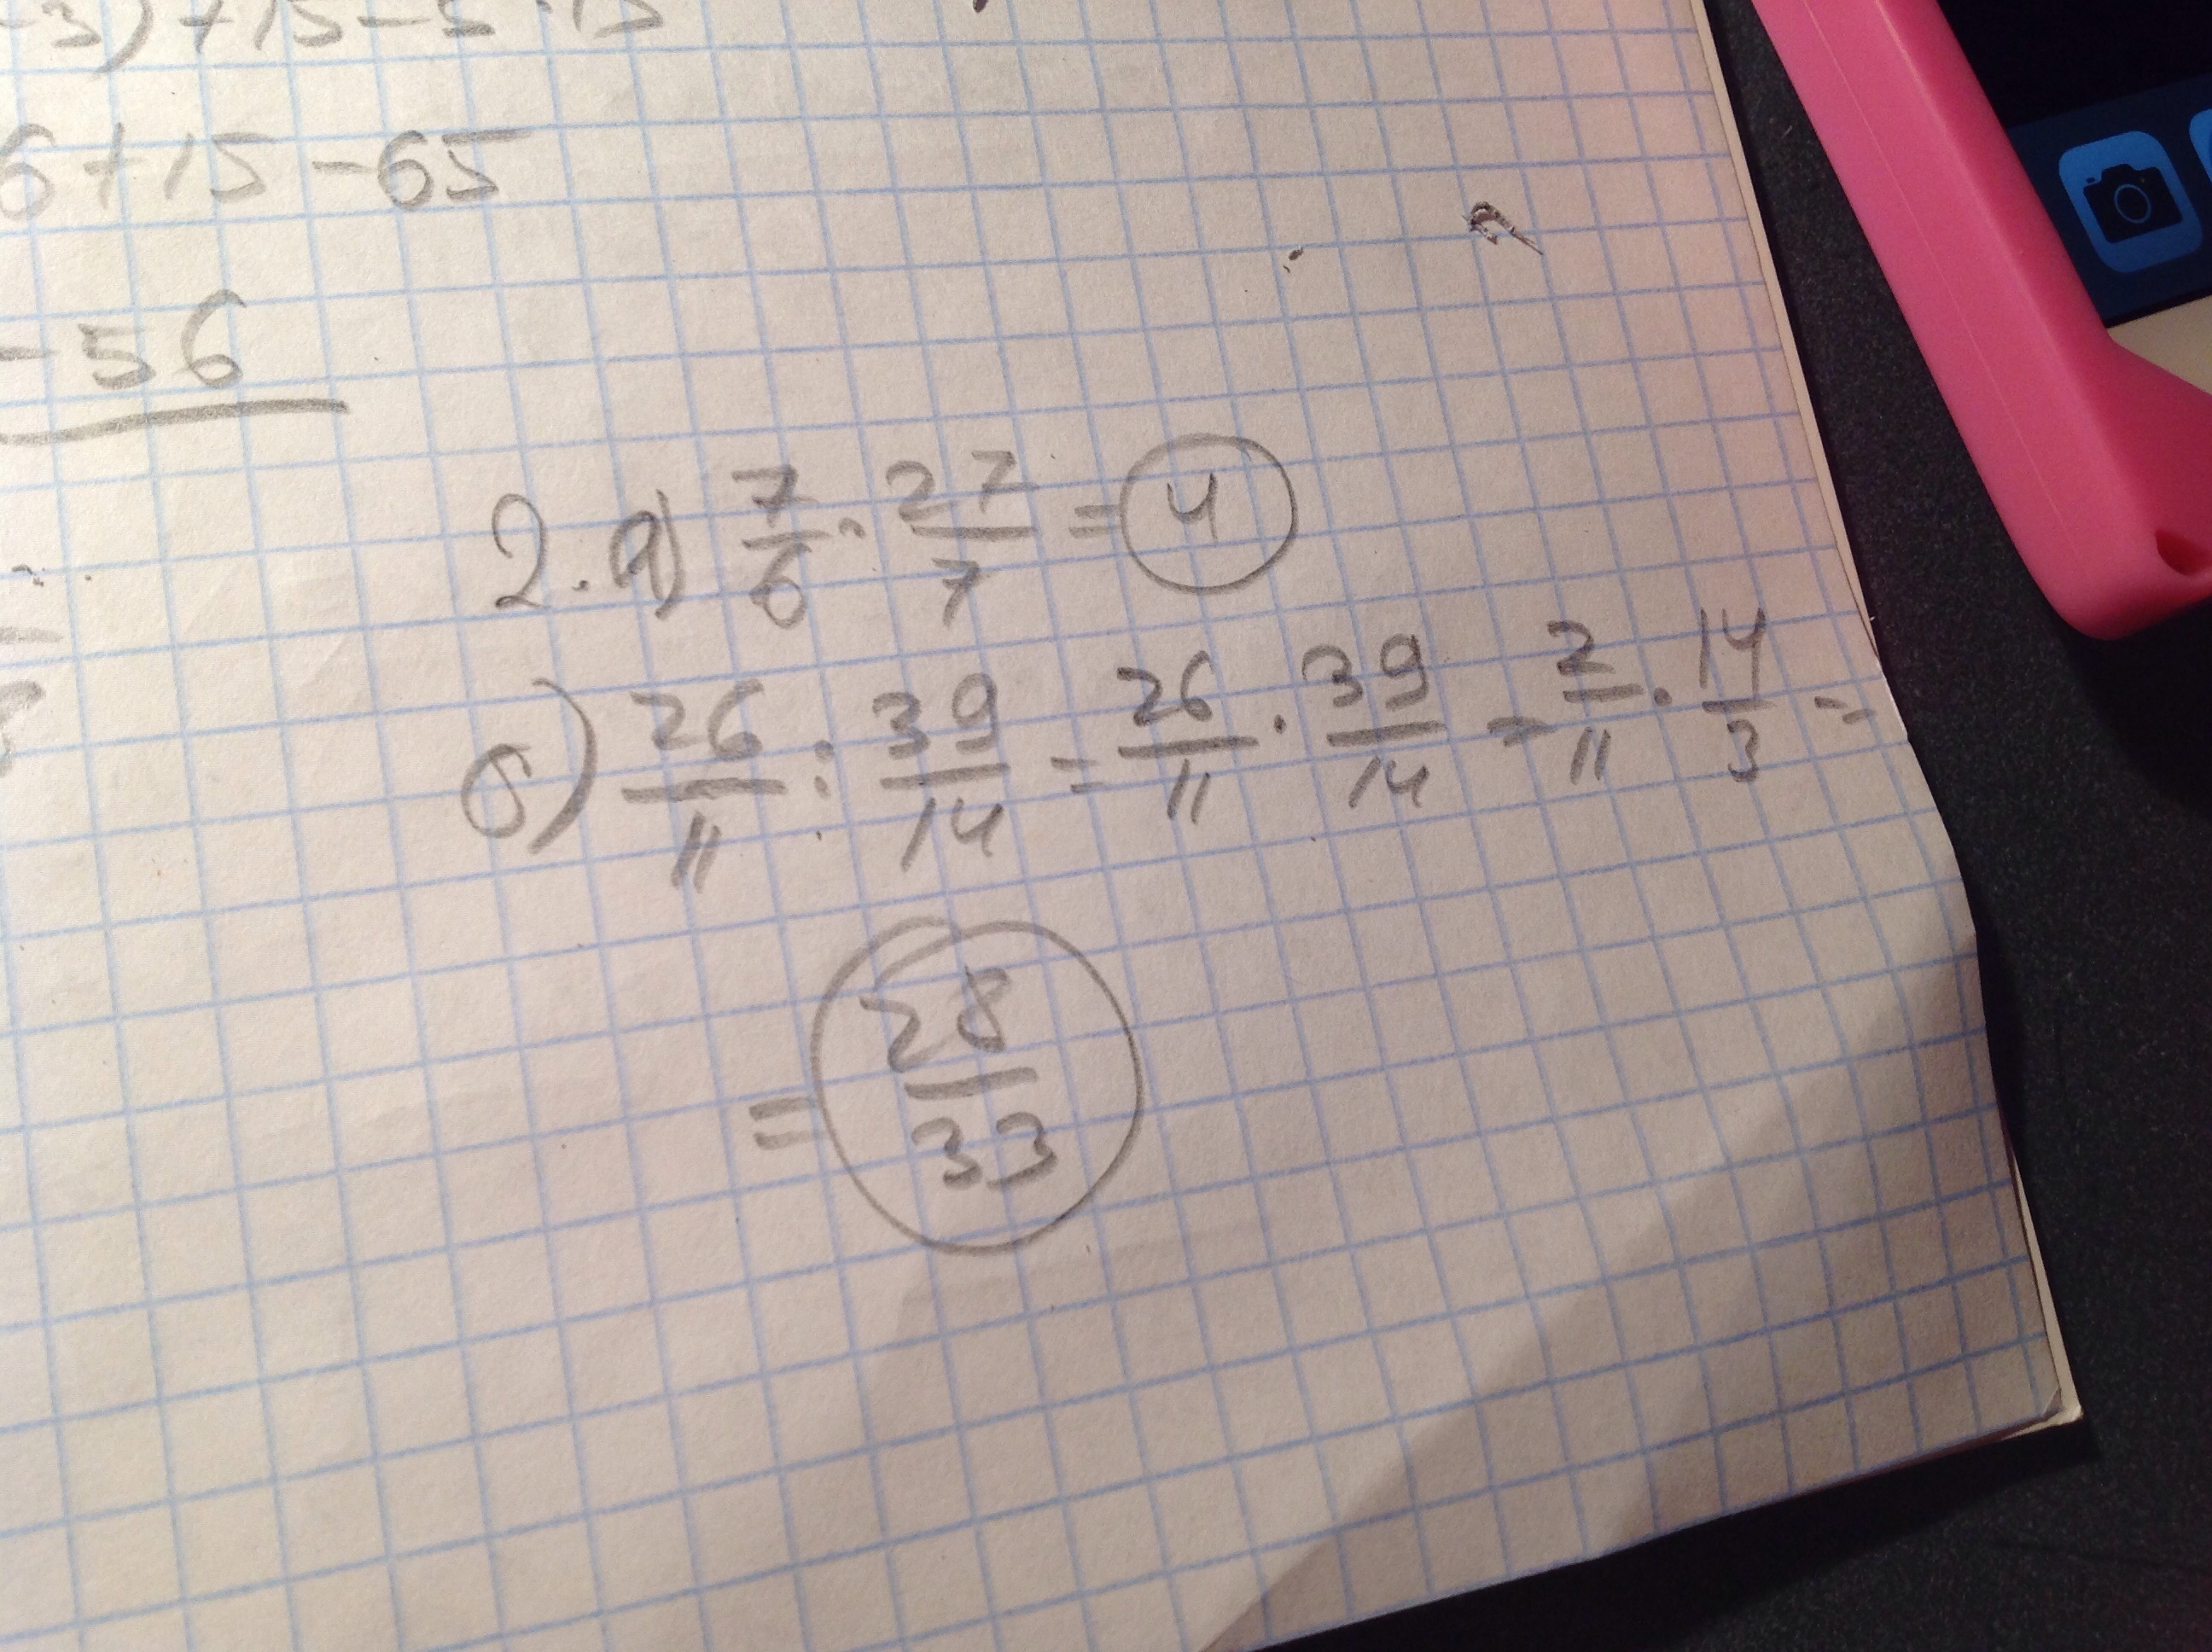 3) + 15 - 5 · 13
6 + 15 - 65
- 56
2. а) 7/6 · 27/7 = 4
б) 26/11 : 39/14 = 26/11 · 39/14 = 2/11 · 14/3 =
= 28/33